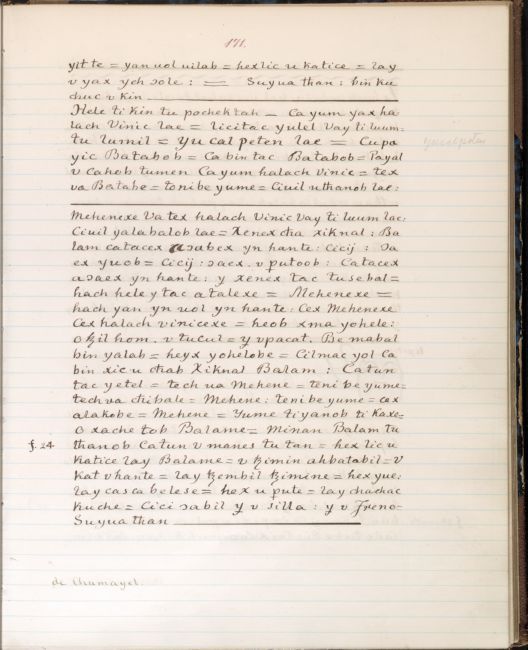 171.
yit te = yan uol uilab = hex lic u katice = lay
v yax ych sole : = Suyua than : bin ku
chuc v kin
Hele ti kin tu pochektah — Ca yum yax ha
lach Vinic lae = licitac yulel Vay ti luum.
tu lumil = yucalpeten lae = Cupa
yucalpeten
yic Batabob = Ca bin tac Batabob = Payal
v cahob tumen Ca yum halach vinic = tex
va Batabe = tonibe yume = Ciuil uthanob lae:
Mehenexe Va tex halach Vinic Vay ti luum lae:
Ciuil yalabalob lae = Xenex cħa xiknal : Ba
lam catacex asabex yn hante : Cicij : sa
ex yuob = Cicij : saex . v putoob : Catacex
asaex yn hante : y xenex tac tusebal =
hach hele y tac a talexe = Mehenexe =
hach yan yn uol yn hante : Cex Mehenexe
Cex halach vinicexe = heob xma yohele :
okil hom . v tucul = y v pacat . Be mabal
bin yalab = heyx yohelobe = Cilmac yol Ca
bin xic u cħab Xiknal Balam : Catun
tac yetel = tech ua Mehene = teni be yume =
tech va cħibale = Mehene : teni be yume = cex
alakobe = Mehene = Yume ti yanob ti kaxe =
O xache tob Balame = Minan Balam tu
f. 24
thanob Catun v manes tu tan = hex lic u
Katice lay Balame = v tzimin ahbatabil = v
Kat v hante = lay tzembil tzimine = hex yue :
lay cascabelese = hex u pute = lay chachac
Kuche = Cici sabil y v silla : y v freno —
Suyua than
de Chumayel.